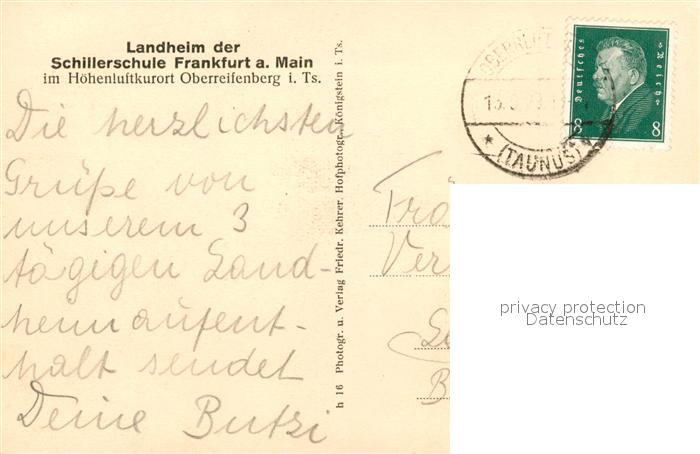 Landheim der
Schillerschule Frankfurt a. Main
im Höhenluftkurort Oberreifenberg i. Ts.
Die herzlichsten
Grüße von
unserem 3
tägigen Land-
heimaufent-
halt sendet
Deine Butzi
h 16 Photogr. u. Verlag Friedr. Kehrer, Hofphotogr., Königstein i. Ts.
Deutsches Reich
8 8
(TAUNUS)
privacy protection
Datenschutz